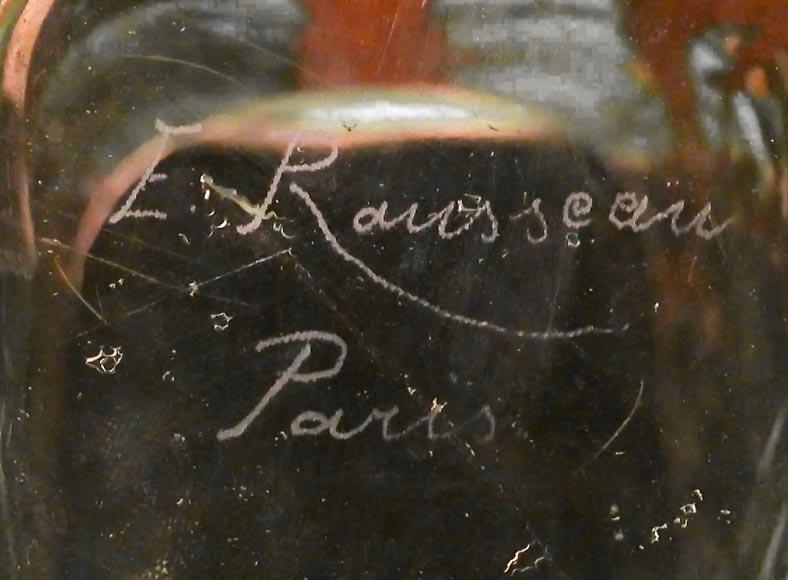 E. Rousseau
Paris